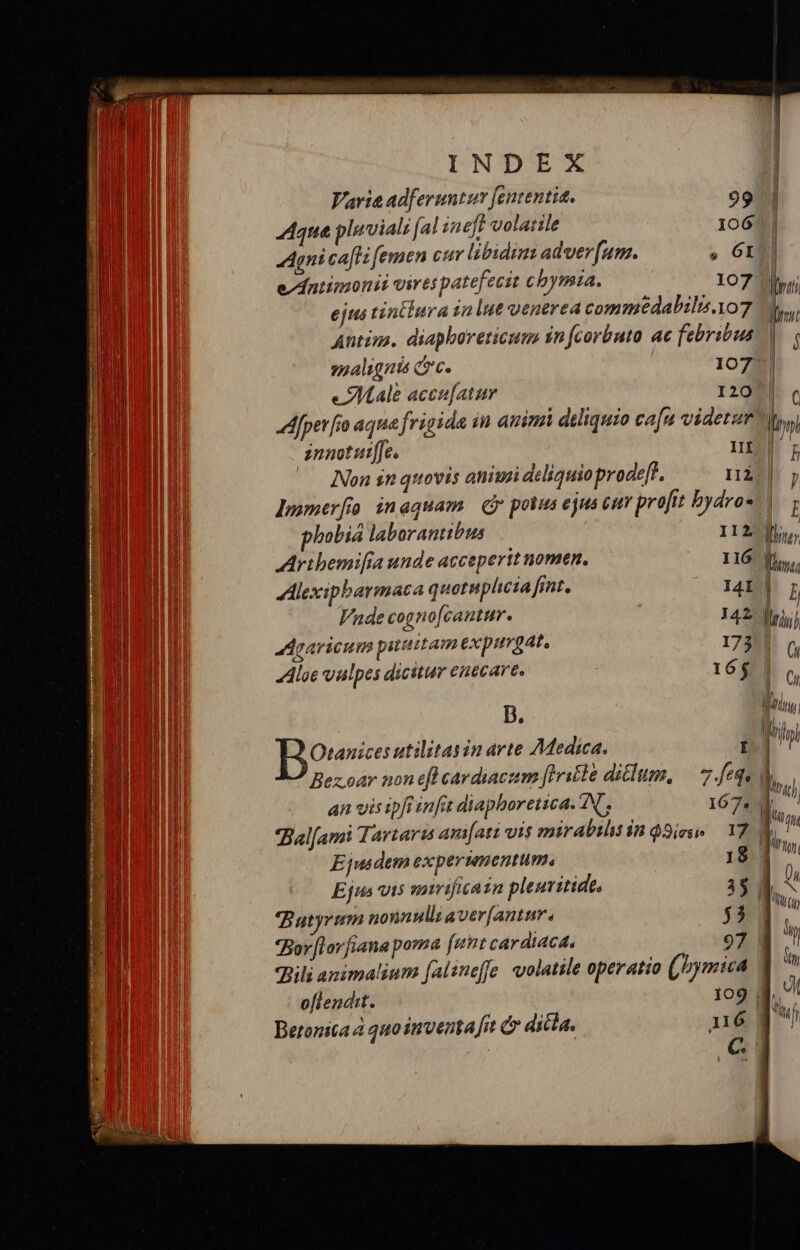 INDEX
Variæ adferuntur ſententiæ. 99
Aquæ pluviali ſal ineſt volatile 106
Agni caſti ſemen cur libidini adverſum. 61
Antimonii vires patefecit chymia. 107
ejus tinctura in lue venerea commēdabilis. 107
Antim. diaphoreticum in ſcorbuto ac febribus
malignis &c. 107
Male accuſatur 120
Aſperſio aquæ frigidæ in animi deliquio caſu videtur
innotuiſſe. 111
Non in quovis animi deliquio prodeſt. 112
Immerſio in aquam & potus ejus cur proſit hydro-
phobiâ laborantibus 112
Arthemiſia unde acceperit nomen. 116
Alexipharmaca quotuplicia ſint. 141
Vnde cognoſcantur. 142
Agaricum pituitam expurgat. 173
Aloe vulpes dicitur enecare. 165
B.
BOtanices utilitas in arte Medica. 1
Bezoar non eſt cardiacum ſtrictè dictum, 7. ſeq.
an vis ipſi inſit diaphoretica. N. 167.
Balſami Tartari amſati vis mirabilis in φθίσει 17
Ejusdem experimentum. 18
Ejus vis mirifica in pleuritide. 35
Butyrum nonnulli averſantur. 53
Borſtorſiana poma ſunt cardiaca. 97
Bili animalium ſal ineſſe volatile operatio Chymica
oſtendit. 109
Betonica à quo inventa ſit & dicta. 116
C.